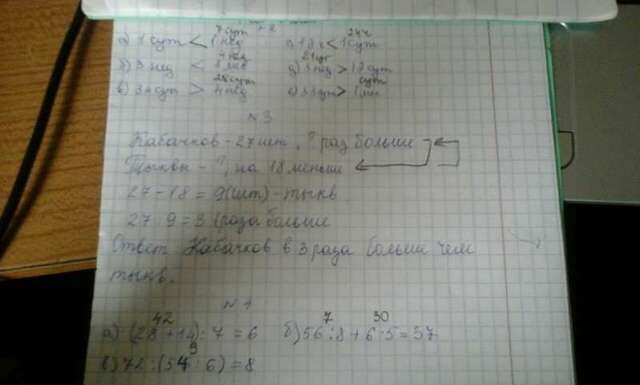 7 сут
24 ч
а) 1 сут < 1 нед
< 1 сут
б) 3 нед <
21 сут
д) 3 нед > 19 сут
28 сут
в) 34 сут > 4 нед
№ 3
Кабачков - 27 шт, ? раз больше
Тыквы - ?, на 18 меньше
27 - 18 = 9 (шт) - тыкв
27 9 = 3 (раза больше
Ответ Кабачков в 3 раза больше чем
тыкв.
42
а) (28 + 14) : 7 = 6
7 30
б) 56 : 8 + 6 · 5 = 37
9
в) 72 : (54 : 6) = 8